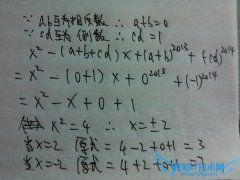 ∵ ab互为相反数 ∴ a+b=0
∵ cd互为倒数 ∴ cd=1
x²-(a+b+cd)x+(a+b)²⁰¹³+(-cd)²⁰¹⁴
=x²-(0+1)x+0²⁰¹³+(-1)²⁰¹⁴
=x²-x+0+1
x²=4 ∴ x=±2
当x=2 原式=4-2+0+1=3
当x=-2 原式=4+2+0+1=7